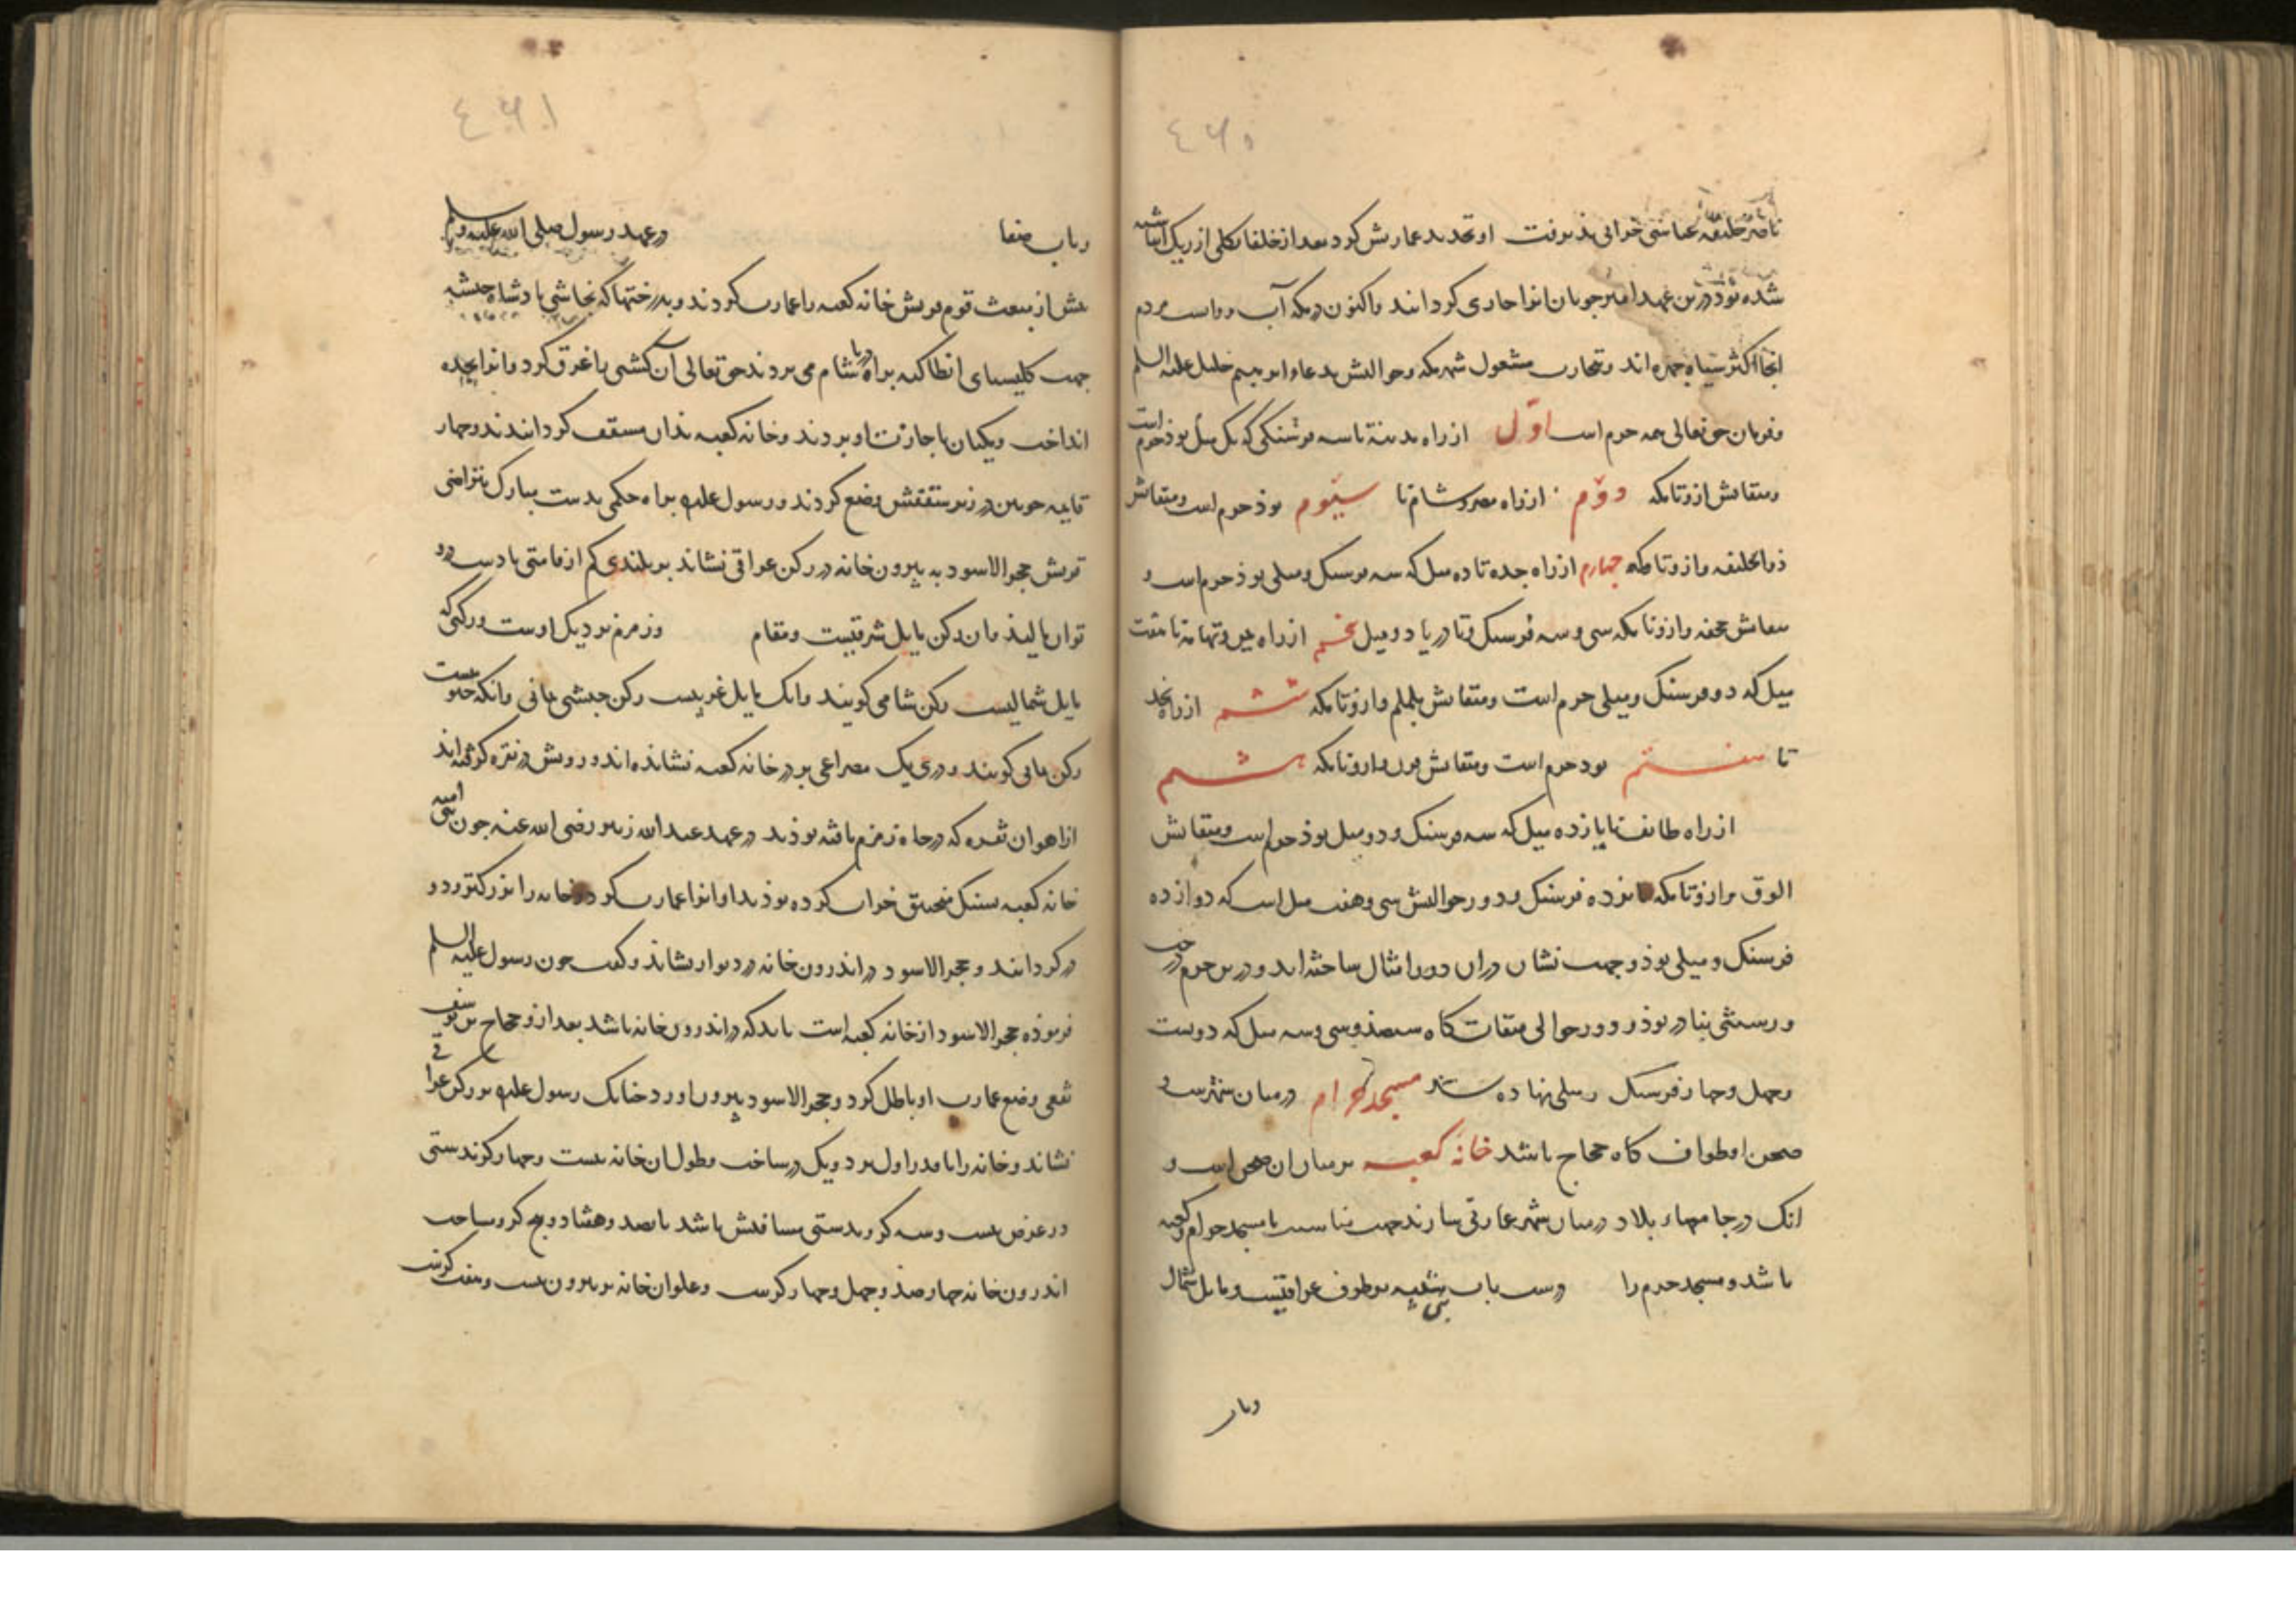 ٤٦٠
ناصر خلیفه عباسی خرابی پذیرفت او تجدید عمارتش کرد بعد از خلفا بکلی از ریک انباشته
شده بود درین عهد امیر جوبان انرا جاری کردانید واکنون در مکه آب روانست مردم
انجا اکثر سیاه چهره اند وبتجارت مشغول شهر مکه وحوالیش بدعاء ابرهیم خلیل علیه السلم
وفرمان حق تعالی همه حرم است اوّل از راه مدینه تا سه فرسنکی که یک میل بوذ حرم است
ومیقاتش ازو تا مکه دوّم از راه مصر وشام تا سیّوم بوذ حرم است ومیقاتش
ذو الحلیفه وازو تا مکه چهارم از راه جده تا ده میل که سه فرسنک ومیلی بوذ حرم است و
میقاتش جحفه وازو تا مکه سی وسه فرسنک وتا دریا دو میل پنجم از راه یمن وتهامة تا هفت
میل که دو فرسنک ومیلی حرم است ومیقاتش یلملم وازو تا مکه ششم از راه نجد
تا هفتم بود حرم است ومیقاتش قرن وازو تا مکه هشتم
از راه طایف تا یازده میل که سه فرسنک ودو میل بوذ حرم است ومیقاتش
وازو تا مکه فرسنک ودور حوالیش سی وهفت میل است که دوازده
فرسنک ومیلی بوذ وجهت نشان دران دور امثال ساخته اند ودرین حرم درخت
ورستنی بوذ ودور حوالی میقات کاه سیصد وسی وسه میل که دویست
وچهل وچهار فرسنک ومیلی نهاده مسجد حرام در میان شهرست و
صحن او طواف کاه حجاج باشد خانه کعبه بر میان ان صحن است و
انک در جامعهاء بلاد در میان شهر عمارتی سازند جهت مناسبت با مسجد حرام وکعبه
باشد ومسجد حرم را درست باب بنی شیبه بر طرف عراقیست ومایل شمال
وباب
٤٦١
وباب صفا در عهد رسول صلی الله علیه وسلم
پیش از مبعث قوم قریش خانه کعبه را عمارت کردند وبدرختها که نجاشی پادشاه حبشه
جهت کلیسیای انطاکیه براه دریا بشام می بردند حق تعالی آن کشتی را غرق کرد وانرا بجده
انداخت ومکیان باجازت او بردند وخانه کعبه بذان مسقف کردانیدند وچهار
قایمه چوبین در زیر سقفش وضع کردند ورسول علیه براه حکمی بدست مبارک بتراضی
قریش حجر الاسود به بیرون خانه در رکن عراقی نشاند بر بلندی کم از قامتی تا دست درو
توان مالید وان رکن مایل شرقیست ومقام وزمزم نزدیک اوست ورکنی که
مایل شمالیست رکن شامی کویند وانک مایل غربیست رکن حبشی وانکه جنوبیست
رکن یمانی کویند ودری یک مصراعی بر در خانه کعبه نشانده اند ورویش در نقره کرفته اند
از آهوان نقره که در چاه زمزم یافته بوذند در عهد عبد الله زبیر رضی الله عنه چون بنی امیه
خانه کعبه بسنک منجنیق خراب کرده بوذند او انرا عمارت کرد وخانه را بزرکتر ودو
در کردانید وحجر الاسود در اندرون خانه در دیوار نشاند وکفت چون رسول علیه السلم
فرموذه حجر الاسود از خانه کعبه است باید که در اندرون خانه باشد بعد ازو حجاج بن یوسف
ثقفی وضع عمارت او باطل کرد وحجر الاسود بیرون اورد چنانک رسول علیه بر رکن عراقی
نشاند وخانه را با قدر اول برد ویک در ساخت وطول ان خانه بیست وچهار کز بدستی
ودر عرض بیست وسه کز وبدستی مساقتش باشد پانصد وهشتاد وپنج کز ومساحت
اندرون خانه چهارصذ وچهل وچهار کزست وعلو ان خانه بر بیرون بیست وهفت کزست